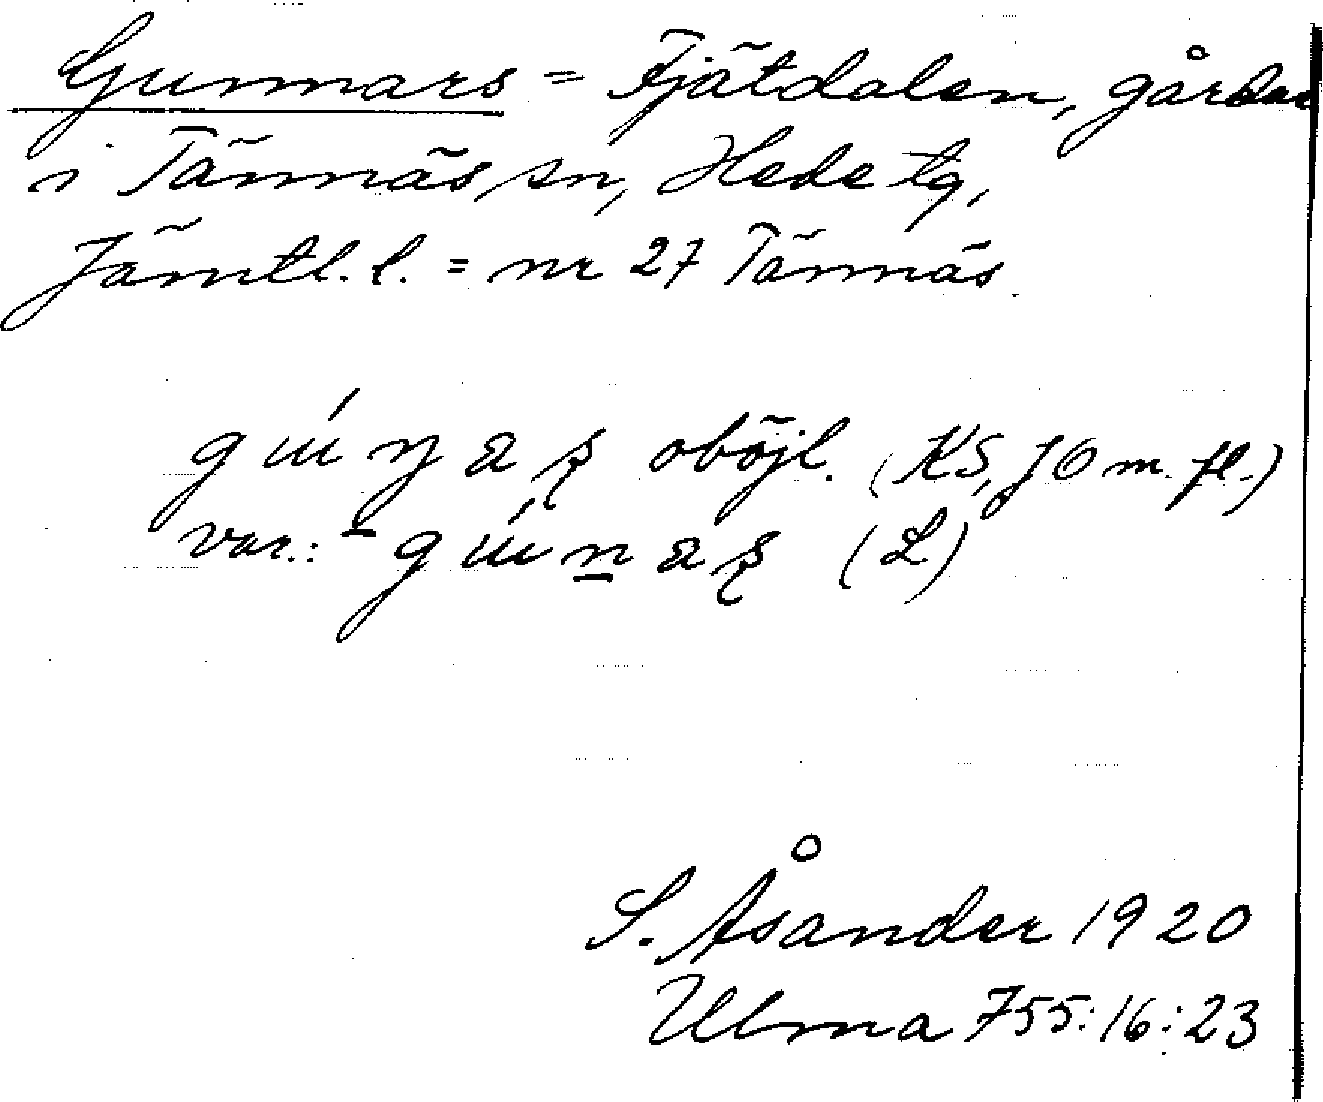 Gunnars = Fjätdalen, gårdar
i Tännäs sn, Hede tg,
Jämtl. l. = nr 27 Tännäs
oböjl. (KS, JO m. fl.)
var.: (L)
S. Åsander 1920
Ulma 755:16:23